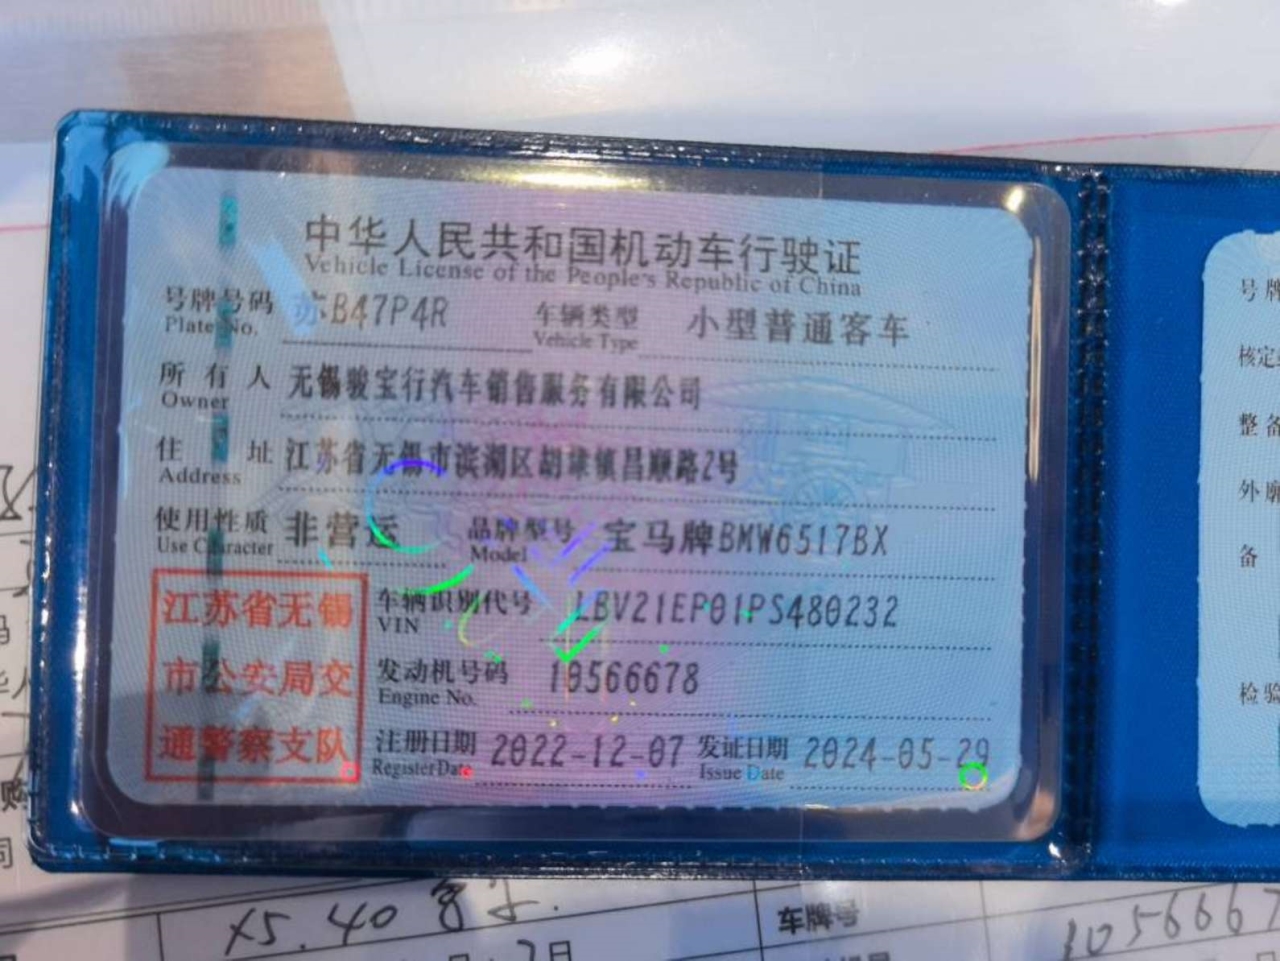 中华人民共和国机动车行驶证
Vehicle License of the People's Republic of China
号牌号码 苏B47P4R 车辆类型 小型普通客车
Plate No. Vehicle Type
所有人 无锡骏宝行汽车销售服务有限公司
Owner
住址 江苏省无锡市滨湖区胡埭镇昌顺路2号
Address
使用性质 非营运 品牌型号 宝马牌BMW6517BX
Use Character Model
车辆识别代号 LBV21EP01PS480232
VIN
发动机号码 10566678
Engine No.
注册日期 2022-12-07 发证日期 2024-05-29
Register Date Issue Date
江苏省无锡
市公安局交
通警察支队
号牌
核定
整备
外廓
备
检验
X5.40
车牌号
1056667